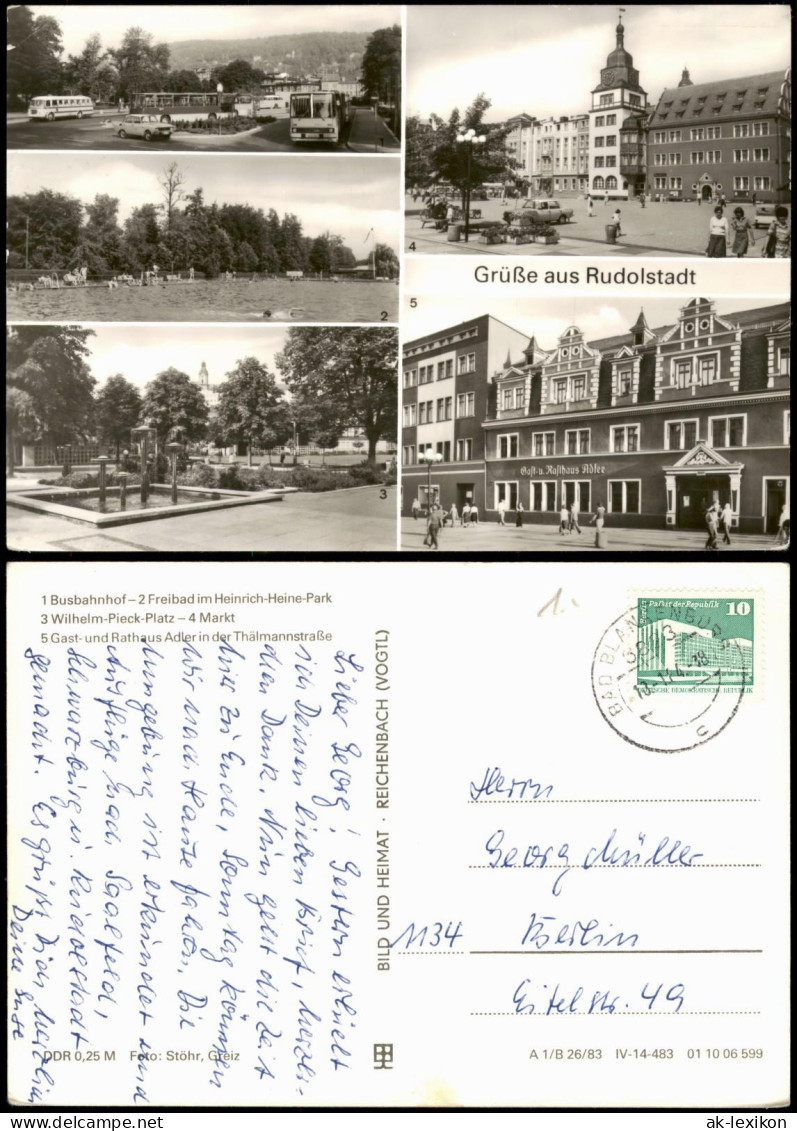 1
2
3
4
Grüße aus Rudolstadt
5
Gast- u. Rasthaus Adler
1 Busbahnhof – 2 Freibad im Heinrich-Heine-Park
3 Wilhelm-Pieck-Platz – 4 Markt
5 Gast- und Rathaus Adler in der Thälmannstraße
Lieber Georg! Gestern erhielt
ich Deinen lieben Brief, herzli-
chen Dank. Nun geht die Zeit
hier zu Ende, Sonntag können
wir nach Hause fahren. Die
Umgebung ist erkundet und
Ausflüge nach Saalfeld,
Schwarzburg u. Rudolstadt
gemacht. Es grüßt Dich herzlich
Deine
DDR 0,25 M Foto: Stöhr, Greiz
BILD UND HEIMAT · REICHENBACH (VOGTL)
1.-
Berlin Palast der Republik 10
DEUTSCHE DEMOKRATISCHE REPUBLIK
BAD BLANKENBURG
6823
c
Herrn
Georg Müller
1134 Berlin
Eitelstr. 49
A 1/B 26/83 IV-14-483 01 10 06 599
ak-lexikon.com